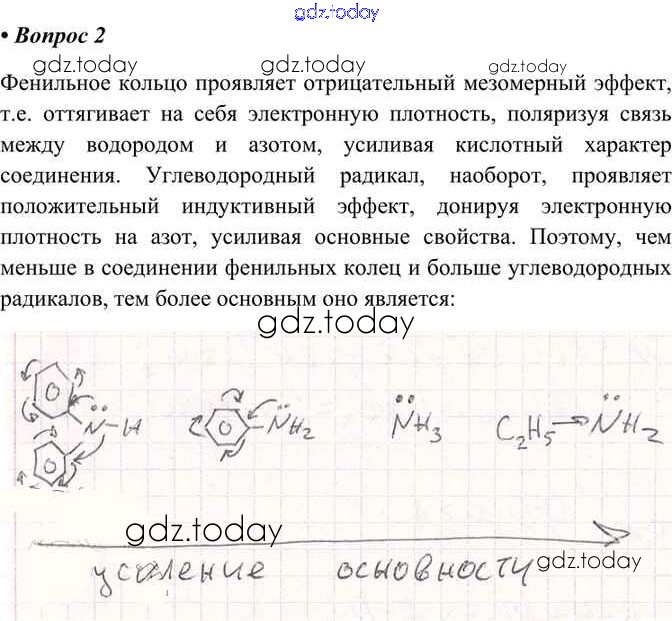 gdz.today
• Вопрос 2
gdz.today gdz.today gdz.today
Фенильное кольцо проявляет отрицательный мезомерный эффект,
т.е. оттягивает на себя электронную плотность, поляризуя связь
между водородом и азотом, усиливая кислотный характер
соединения. Углеводородный радикал, наоборот, проявляет
положительный индуктивный эффект, донируя электронную
плотность на азот, усиливая основные свойства. Поэтому, чем
меньше в соединении фенильных колец и больше углеводородных
радикалов, тем более основным оно является:
gdz.today
N-H NH2 NH3 C2H5→NH2
gdz.today
усиление основности
gdz.today